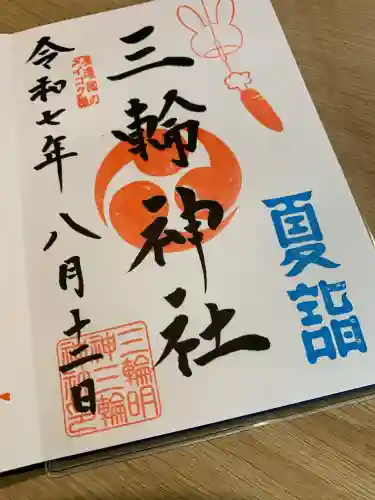 夏詣
三輪神社
令和七年 八月十二日
三輪明
神三輪